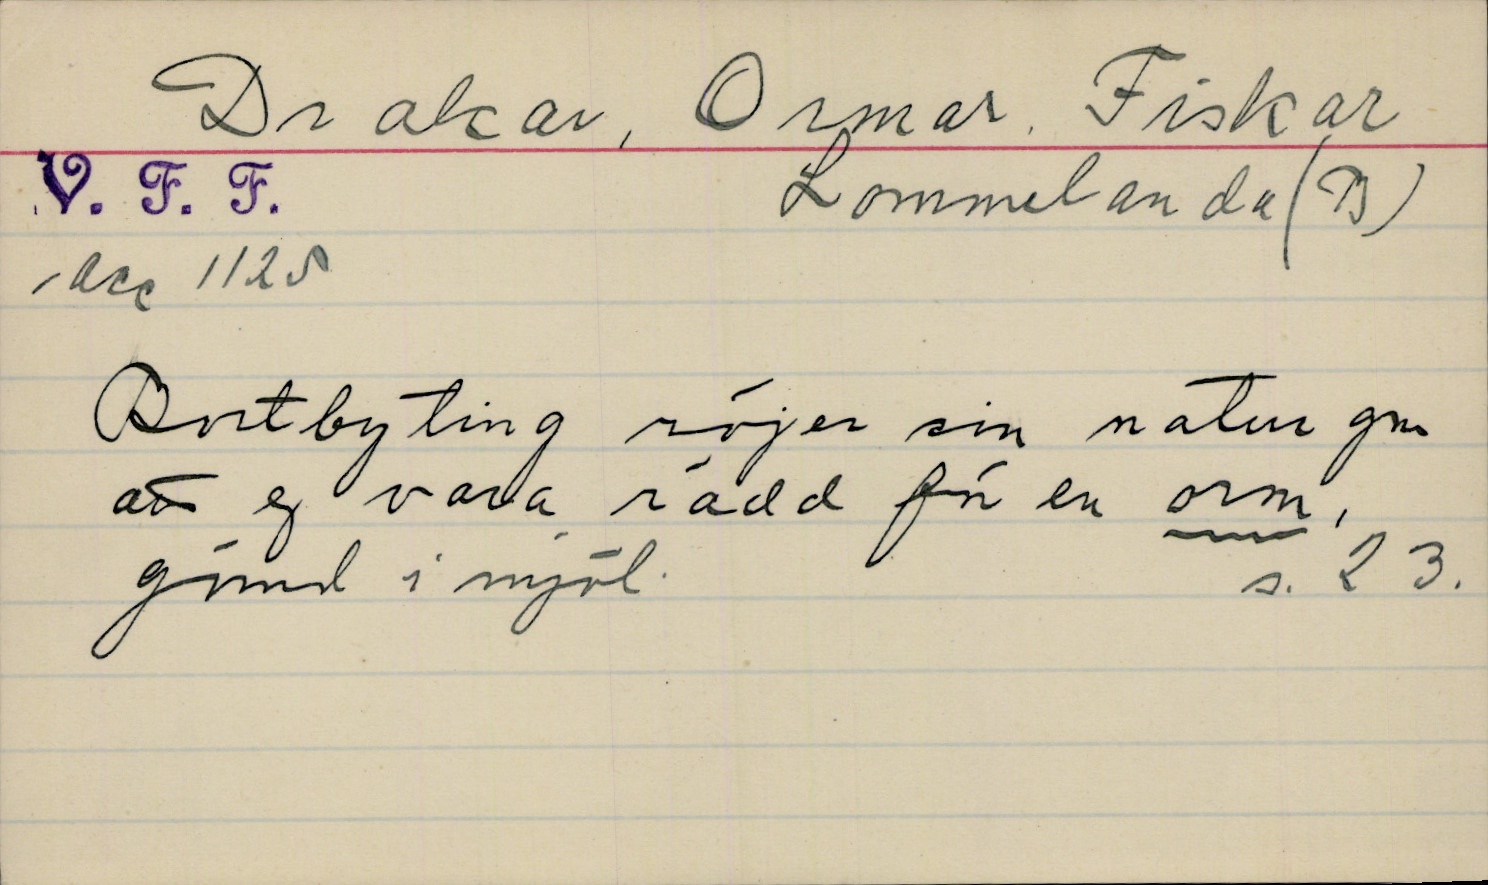 Drakar, Ormar, Fiskar
V. F. F.
Lommelanda (B)
acc 1125
Bortbyting röjer sin natur gm
att ej vara rädd för en orm,
gömd i mjöl.
s. 23.